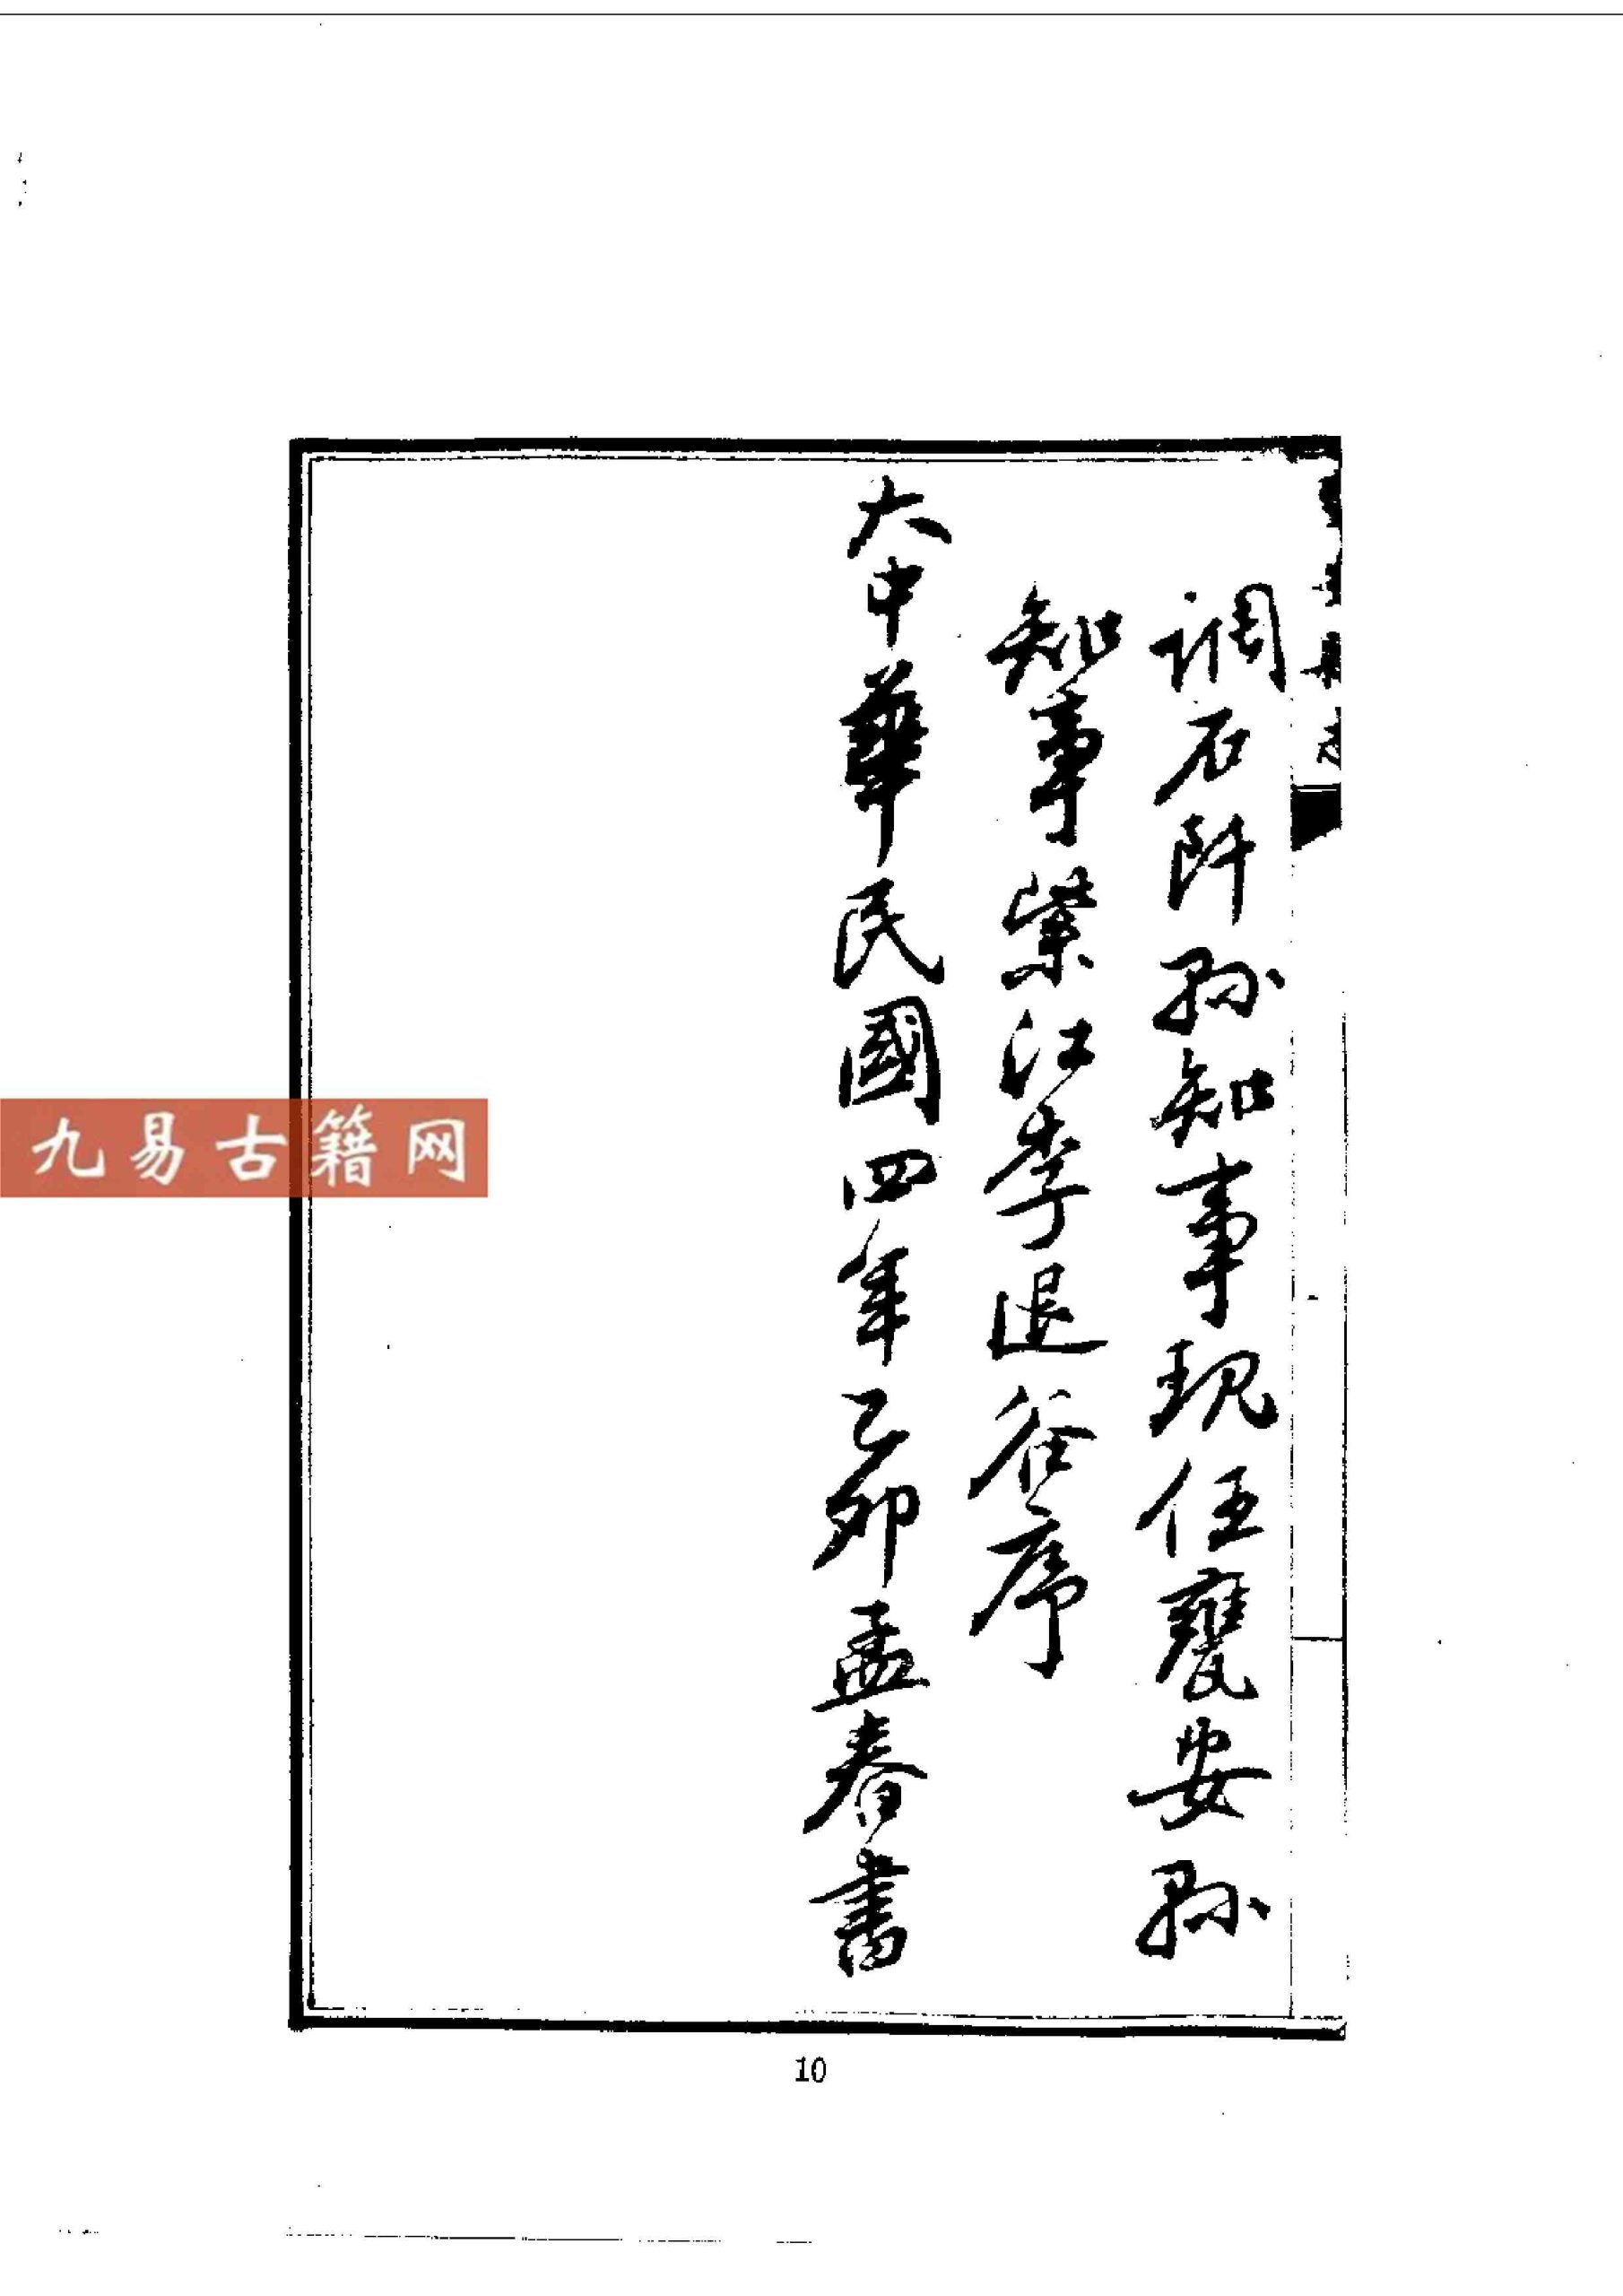 調石阡縣知事現任甕安縣
知事紫江李退谷序
大中華民國四年乙卯孟春書
九易古籍网
10